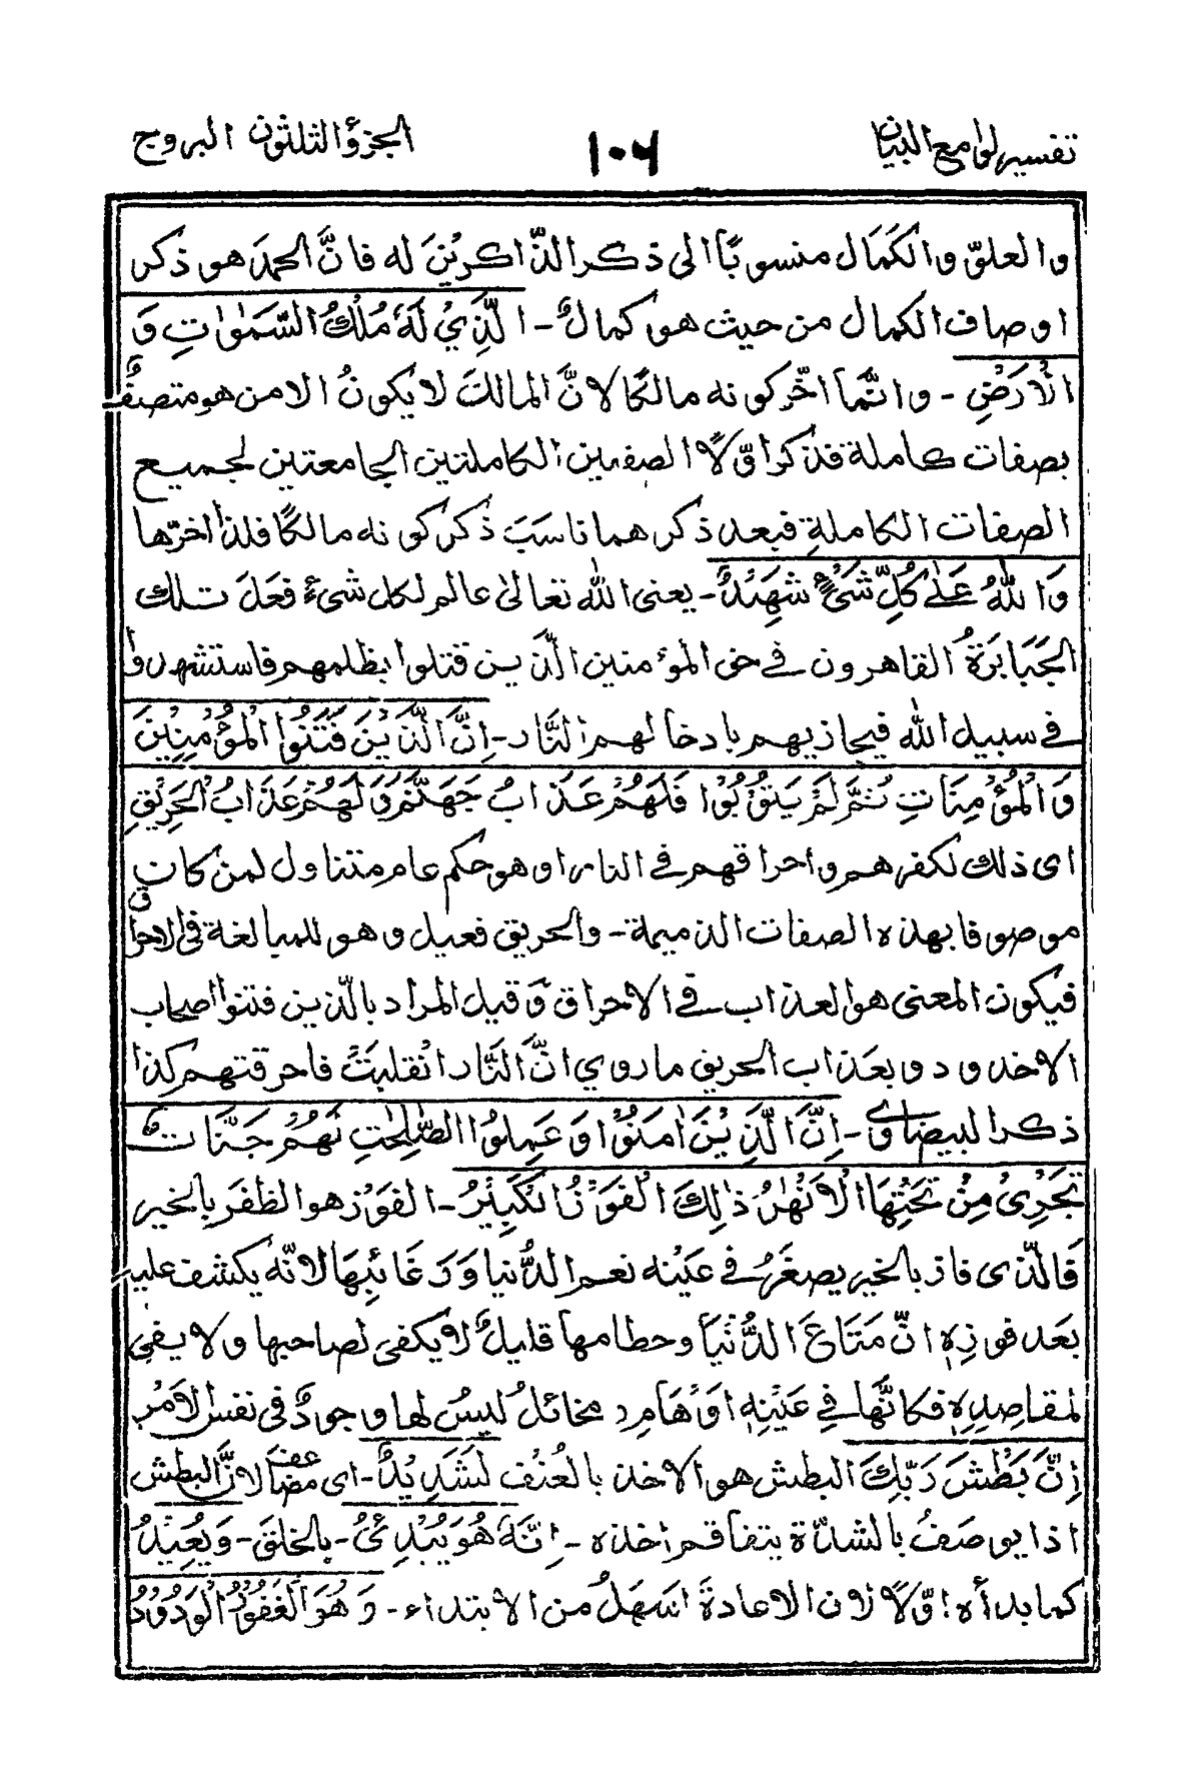 تفسير لوامع البيان
١٠٦
الجزؤ الثلثون البروج
والعلوّ والكَمَال منسوبًا الى ذكر الذّاكرِيْنَ له فانَّ الحمدَ هو ذكر
اوصاف الكمال من حيث هو كمالٌ - الَّذِيْ لَهٗ مُلْكُ السَّمٰوٰتِ وَ
الْاَرْضِ - وانّمآ اخّر كونه مالكًا لانَّ المالكَ لا يكونُ الا من هو متصفٌ
بصفات كاملة فذكر اوّلًا الصفتين الكاملتين الجامعتين لجميع
الصفات الكاملةِ فبعد ذكرهما ناسَبَ ذكر كونه مالكًا فلذا اخرّها
وَاللّٰهُ عَلٰى كُلِّ شَىْءٍ شَهِيْدٌ - يعنى الله تعالىٰ عالم لكل شىءٍ فعَلَ تلك
الجَبَابَرَةُ القاهرون في حق المؤمنين الّذين قتلوا بظلمهم فاستشهدوا
في سبيل الله فيجازيهم بادخالهم النَّار - اِنَّ الَّذِيْنَ فَتَنُوا الْمُؤْمِنِيْنَ
وَالْمُؤْمِنَاتِ ثُمَّ لَمْ يَتُوْبُوْا فَلَهُمْ عَذَابُ جَهَنَّمَ وَلَهُمْ عَذَابُ الْحَرِيْقِ
اى ذلك لكفرهم واحراقهم في النار او هو حكم عام متناول لمن كان
موصوفا بهذه الصفات الذميمة - والحريق فعيل وهو للمبالغة في الاحراق
فيكون المعنى هو العذاب في الاحراق وقيل المراد بالّذين فتنوا اصحاب
الاخدود وبعَذاب الحريق ما روي انَّ النَّار انْقلبَتْ فاحرقتهم كذا
ذكر البيضاوى - اِنَّ الَّذِيْنَ اٰمَنُوْا وَعَمِلُوا الصّٰلِحٰتِ لَهُمْ جَنَّاتٌ
تَجْرِىْ مِنْ تَحْتِهَا الْاَنْهٰرُ ذٰلِكَ الْفَوْزُ الْكَبِيْرُ - الفَوْز هو الظفَر بالخير
فَالّذى فاز بالخير يصغَرُ في عَيْنه نعم الدُّنيا وَرَغَائِبِهَا لانّه يكشف عليه
بَعد فوزِهٖ انّ مَتَاعَ الدُّنْيَا وحطامها قليلٌ لا يكفى لصاحبها ولا يفى
لمقاصِدِهٖ فكانَّها في عَيْنِهٖ اَوْهَام ومخائلُ ليسُ لها وجودٌ في نفس الْاَمْر
اِنَّ بَطْشَ رَبِّكَ البطش هو الاخذ بالعُنْف لَشَدِيْدٌ - اى مضاعف لانَّ البطش
اذا يوصَفُ بالشدّة يتفاقم اخذه - اِنَّهٗ هُوَ يُبْدِئُ - بالخلقَ - وَيُعِيْدُ
كما بدأه اوّلًا لان الاعادةَ اسَهلُ من الابتداء - وَهُوَ الْغَفُوْرُ الْوَدُوْدُ